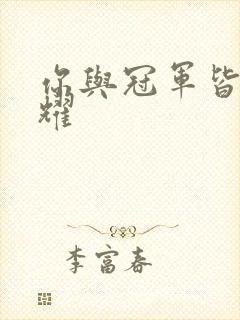 你與冠軍皆
耀
李富春